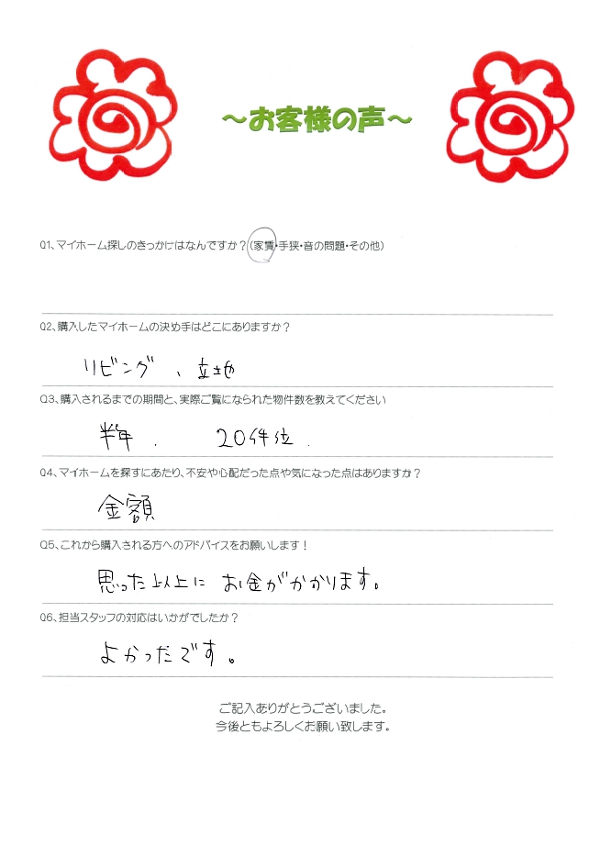 ～お客様の声～
Q1、マイホーム探しのきっかけはなんですか？（家賃・手狭・音の問題・その他）
Q2、購入したマイホームの決め手はどこにありますか？
リビング、立地
Q3、購入されるまでの期間と、実際ご覧になられた物件数を教えてください
半年. 20件位.
Q4、マイホームを探すにあたり、不安や心配だった点や気になった点はありますか？
金額
Q5、これから購入される方へのアドバイスをお願いします！
思った以上に お金がかかります。
Q6、担当スタッフの対応はいかがでしたか？
よかったです。
ご記入ありがとうございました。
今後ともよろしくお願い致します。